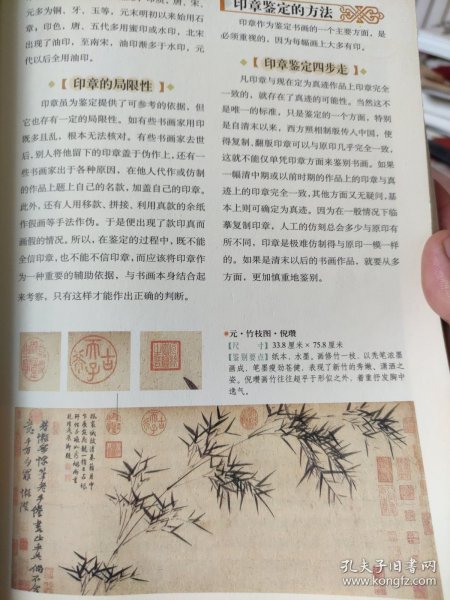 元多为铜、牙、玉等，元末明初以来始用石
章；印色，唐、五代多用蜜印或水印，北宋
出现了油印，至南宋，油印渐多于水印，元
代以后全用油印。
【印章的局限性】
印章虽为鉴定提供了可参考的依据，但
它也存有一定的局限性。如有些书画家用印
既多且乱，根本无法核对。有些书画家去世
后，别人将他留下的印章盖于伪作上，还有一
些书画家出于各种原因，在他人代作或仿制
的作品上题上自己的名款，加盖自己的印章。
此外，还有人用移款、拼接、利用真款的余纸
作假画等手法作伪。于是便出现了款印真而
画假的情况。所以，在鉴定的过程中，既不能
全信印章，也不能不信印章，而应该将印章作
为一种重要的辅助依据，与书画本身结合起
来考察，只有这样才能作出正确的判断。
印章鉴定的方法
印章作为鉴定书画的一个主要方面，是
必须重视的，因为每幅画上大多有印。
【印章鉴定四步走】
凡印章与现在定为真迹作品上印章完全
一致的，就存在了真迹的可能性。当然这不
是唯一的标准，只是鉴定的一个方面，特别
是自清末以来，西方照相制版传入中国，使
得复制、翻版印章可以与原印几乎完全一致，
这就不能仅单凭印章方面来鉴别书画。如果
一幅清中期或以前时期的作品上的印章与真
迹上的印章完全一致，其他方面又无疑问，基
本上则可确定为真迹。因为在一般情况下临
摹复制印章，人工的仿刻总会多少与原印有
所不同，印章是极难仿制得与原印一模一样
的。如果是清末以后的书画作品，就要从多
方面，更加慎重地鉴别。
元·竹枝图·倪瓒
【尺 寸】33.8厘米×75.8厘米
【鉴别要点】纸本，水墨。画修竹一枝，以秃笔浓墨
画成，笔墨瘦劲苍健，表现了新竹的秀嫩、潇洒之
姿。倪瓒画竹往往超乎于形似之外，着重抒发胸中
逸气。
孔夫子旧书网